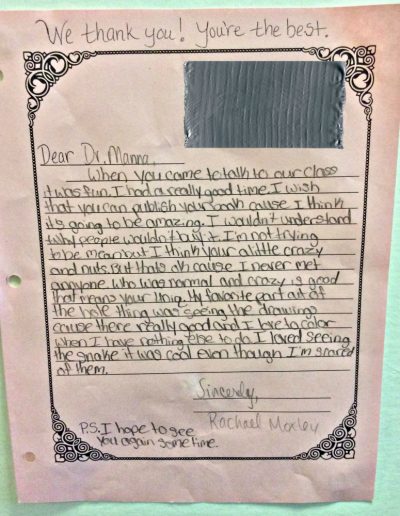 We thank you! You're the best.
Dear Dr. Manna,
When you came to talk to our class
it was fun. I had a really good time. I wish
that you can publish your book cause I think
it's going to be amazing. I wouldn't understand
why people wouldn't buy it. I'm not trying
to be mean but I think your a little crazy
and nuts. But thats ok cause I never met
anyone who was normal and crazy is good
that means your Uniq. My favorite part art of
the hole thing was seeing the drawings
cause there really good and I love to color
when I have nothing else to do. I loved seeing
the snake it was cool even though I'm scared
of them.
Sincerly,
Rachael Moxley
P.S. I hope to see
you again some time.